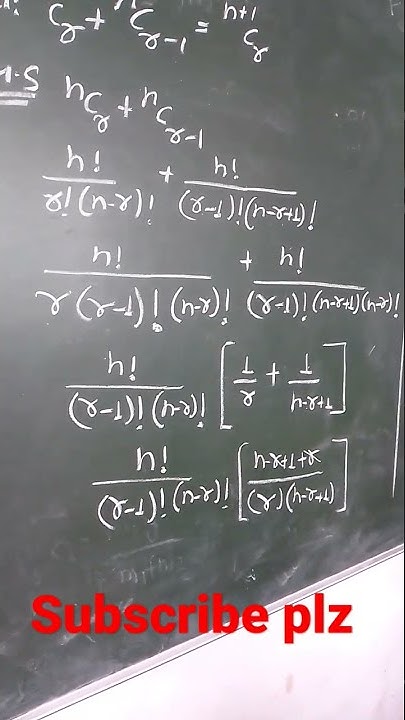 ⁿCᵣ + ⁿCᵣ₋₁ = ⁿ⁺¹Cᵣ
H.S ⁿCᵣ + ⁿCᵣ₋₁
n!/(r!(n-r)!) + n!/((r-1)!(n-r+1)!)
n!/(r(r-1)!(n-r)!) + n!/((r-1)!(n-r+1)(n-r)!)
n!/((r-1)!(n-r)!) [1/r + 1/(n-r+1)]
n!/((r-1)!(n-r)!) [(n-r+1+r)/((r)(n-r+1))]
Subscribe plz